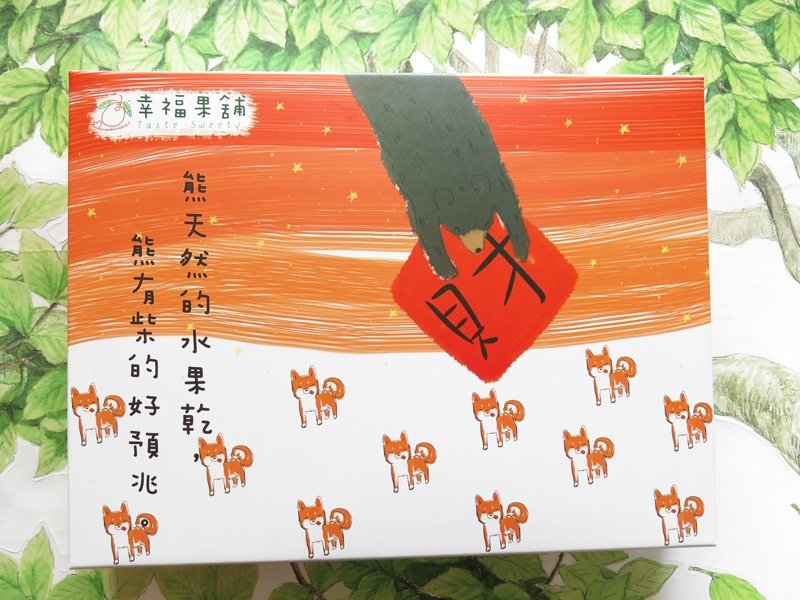 幸福果舖
Taste Sweety
熊天然的水果乾，
熊有柴的好預兆。
財